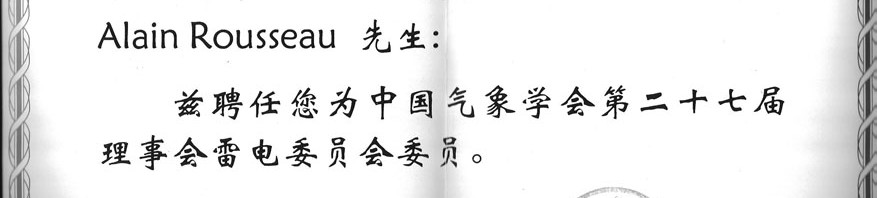 Alain Rousseau 先生:
兹聘任您为中国气象学会第二十七届
理事会雷电委员会委员。